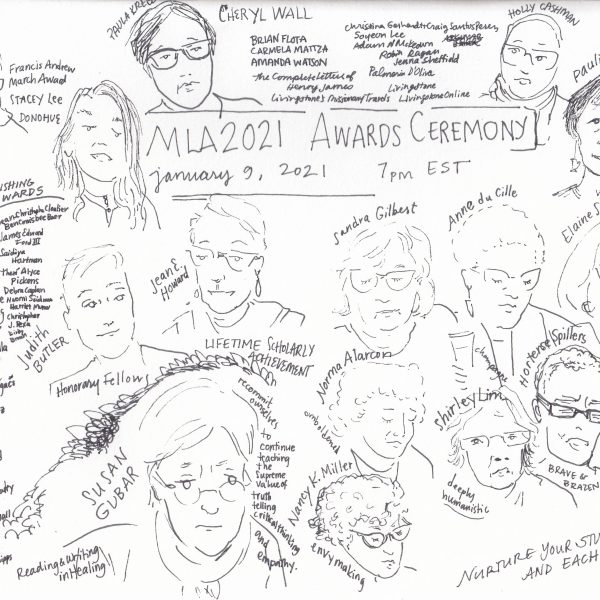 PAULA
CHERYL WALL
BRIAN FLOTA
CARMELA MATTZA
AMANDA WATSON
The Complete Letters of
Henry James
Livingstone's Missionary Travels
Christina Gerhardt + Craig Santos Perez
Soyeon Lee
Adam N McKeown
Robin Ragan
Jenna Sheffield
Palmira D'Oliva
Livingstone
Livingstone Online
HOLLY CASHMAN
Pauli
Francis Andrew
March Award
STACEY LEE
DONOHUE
MLA2021 AWARDS CEREMONY
january 9, 2021 7pm EST
WARDS
Christophe Cloutier
James Edward
Ford III
Saidiya
Hartman
Alyce
Pickens
Debra Caplan
Naomi Seidman
Christopher
J. Pexa
Judith
BUTLER
Honorary Fellow
Jean E.
Howard
LIFETIME SCHOLARLY
ACHIEVEMENT
Sandra Gilbert
Anne du Cille
Elaine S
SUSAN
GUBAR
Reading & Writing
in Healing
recommit
ourselves
to
continue
teaching
the
supreme
value of
truth
telling
critical thinking
and
empathy.
Norma Alarcon
emboldened
Nancy K. Miller
envy making
champagne
Shirley Lim
deeply
humanistic
Hortense Spillers
BRAVE &
BRAZEN
NURTURE YOUR STU
AND EACH